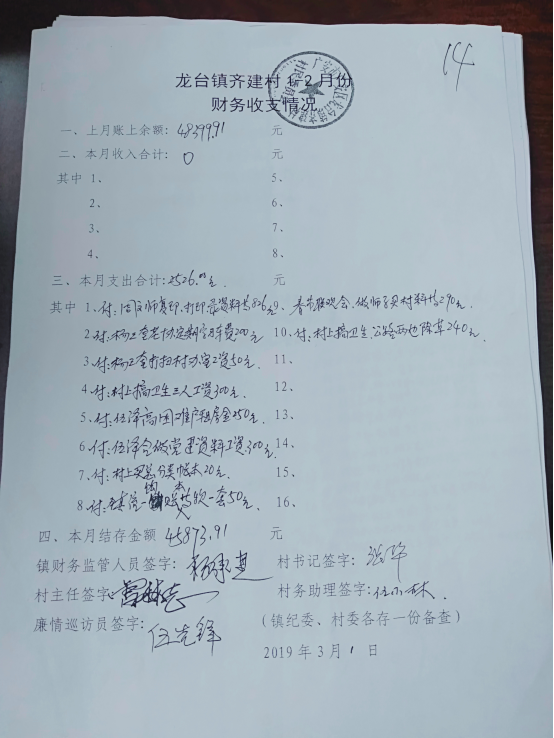 14
龙台镇齐建村1-2月份
财务收支情况
一、上月账上余额:48399.91 元
二、本月收入合计: 0 元
其中 1、 5、
2、 6、
3、 7、
4、 8、
三、本月支出合计:2526.00元. 元
其中 1、付: 复印、打印 资料 826元 9、春节联欢会、 买材料 290元.
2、付: 200元 10、付:村上搞卫生、公路两边除草240元.
3、付: 打扫村办公室工资50元. 11、
4、付:村上搞卫生三人工资300元. 12、
5、付:伍泽高困难户租房金250元. 13、
6、付:伍泽全做党建资料工资300元. 14、
7、付:村上买总分类帐本20元. 15、
8、付: 一套50元. 16、
四、本月结存金额 45873.91 元
镇财务监管人员签字: 村书记签字:
村主任签字: 村务助理签字:伍小林.
廉情巡访员签字:伍先锋 (镇纪委、村委各存一份备查)
2019年3月1日